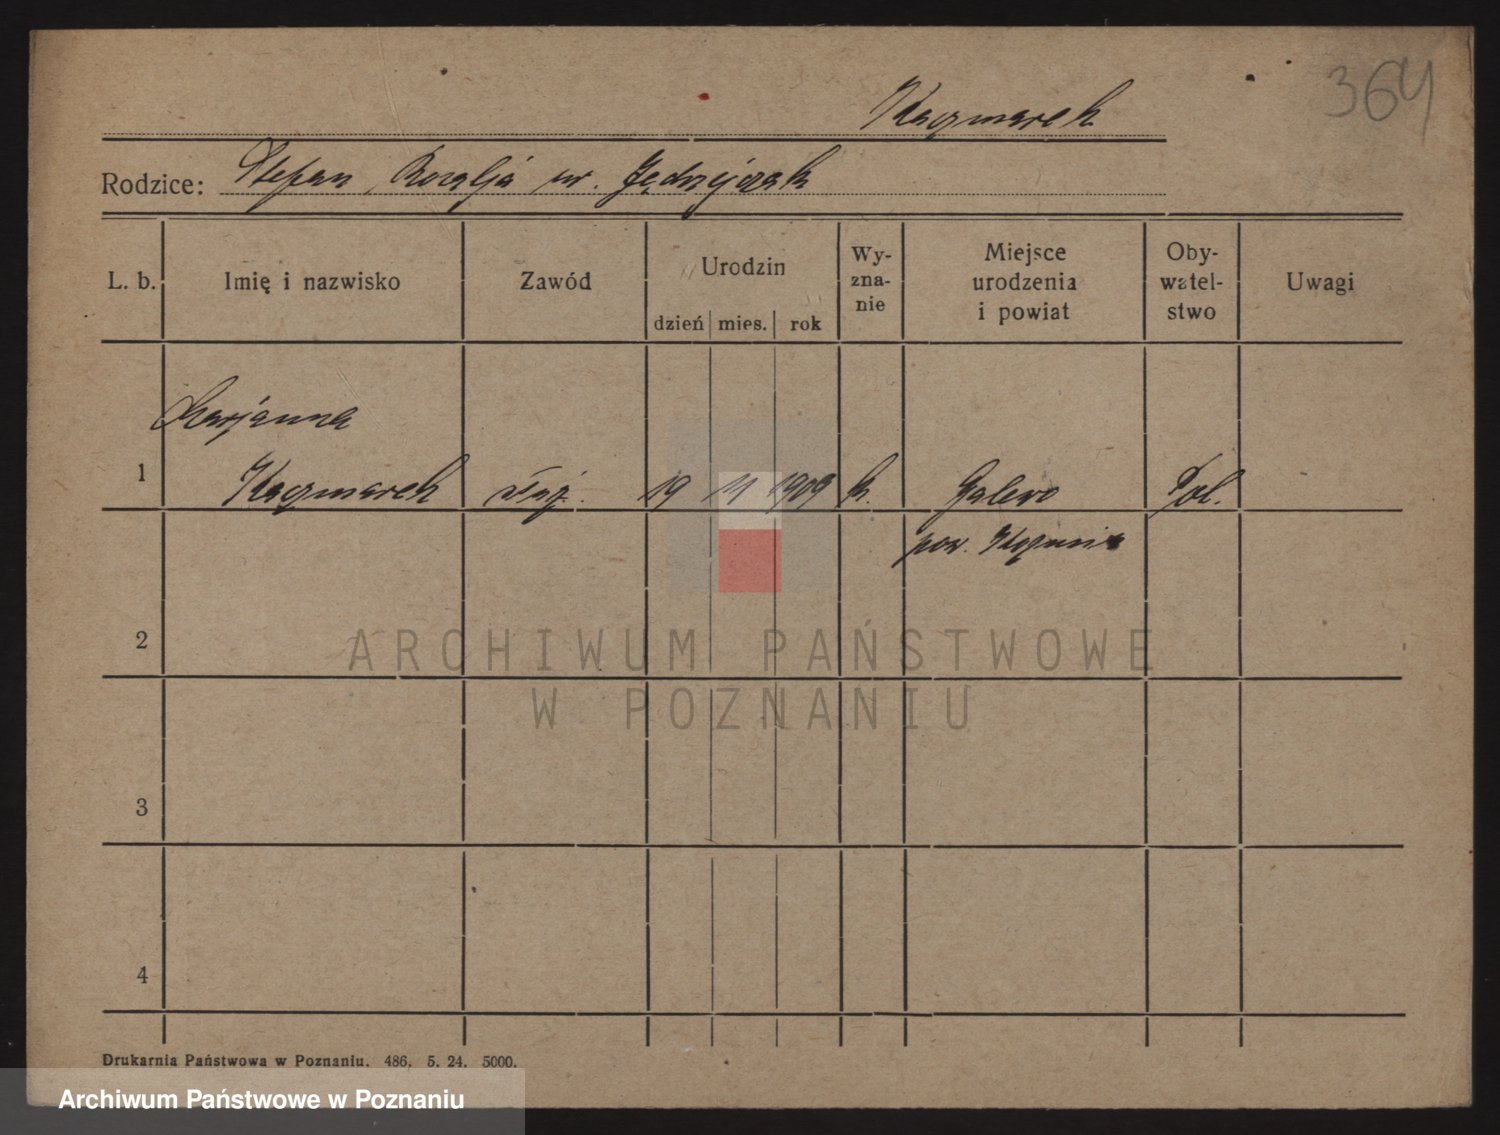 364
Kaczmarek
Rodzice: Stefan Rozalja ur. Jędrzejczak
L. b. Imię i nazwisko Zawód Urodzin dzień mies. rok Wy-zna-nie Miejsce urodzenia i powiat Oby-watel-stwo Uwagi
Marjanna
1 Kaczmarek służ. 19 11 1909 k. Galewo Pol.
pow.
2
ARCHIWUM PAŃSTWOWE
W POZNANIU
3
4
Drukarnia Państwowa w Poznaniu. 486. 5. 24. 5000.
Archiwum Państwowe w Poznaniu